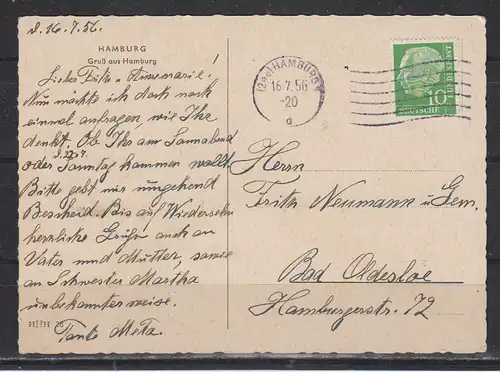 d. 16.7.56.
HAMBURG
Gruß aus Hamburg
Lieber Fritz u. Annemarie!
Nun möchte ich doch noch
einmal anfragen wie Ihr
denkt. Ob Ihr am Sonnabend
d. 22.7.
oder Sonntag kommen wollt.
Bitte gebt mir umgehend
Bescheid. Bis auf Wiedersehn
herzliche Grüße auch an
Vater und Mutter, sowie
an Schwester Martha
unbekannterweise.
Tante Meta.
HHH 28
(24a) HAMBURG
16.7.56
-20
d
10
DEUTSCHE
BUNDESPOST
Herrn
Fritz Neumann u. Gem.
Bad Oldesloe
Hamburgerstr. 72